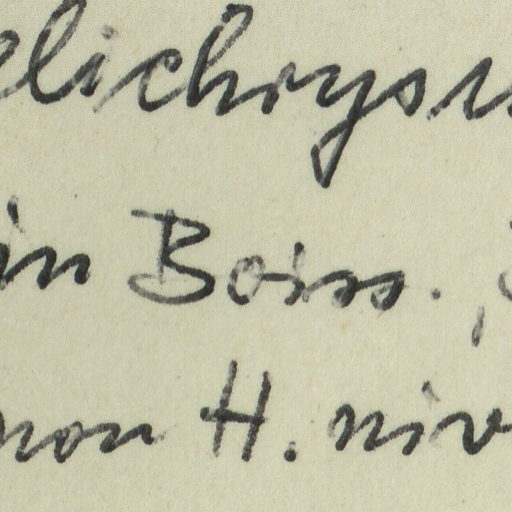 elichrys
in Boiss.,
non H. niv